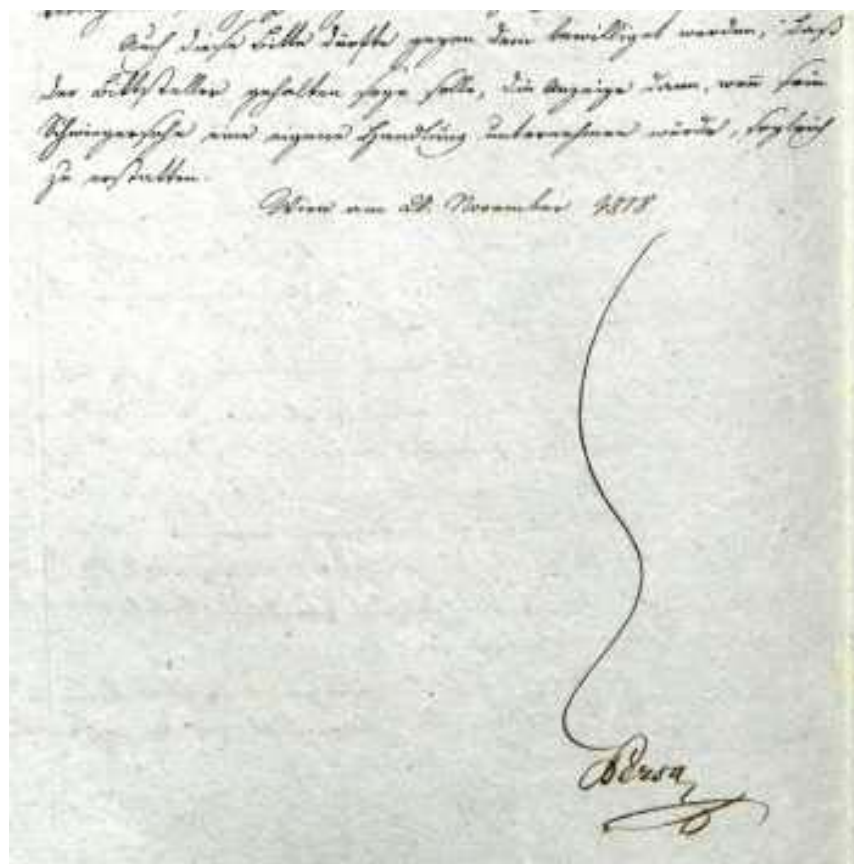 Auch diese Bitte dürfte gegen dem bewilliget werden, daß
der Bittsteller gehalten seye solle, die Anzeige dann, wenn sein
Schwiegersohn eine eigene Handlung unternehmen würde, sogleich
zu erstatten.
Wien am November 1818
Bersa